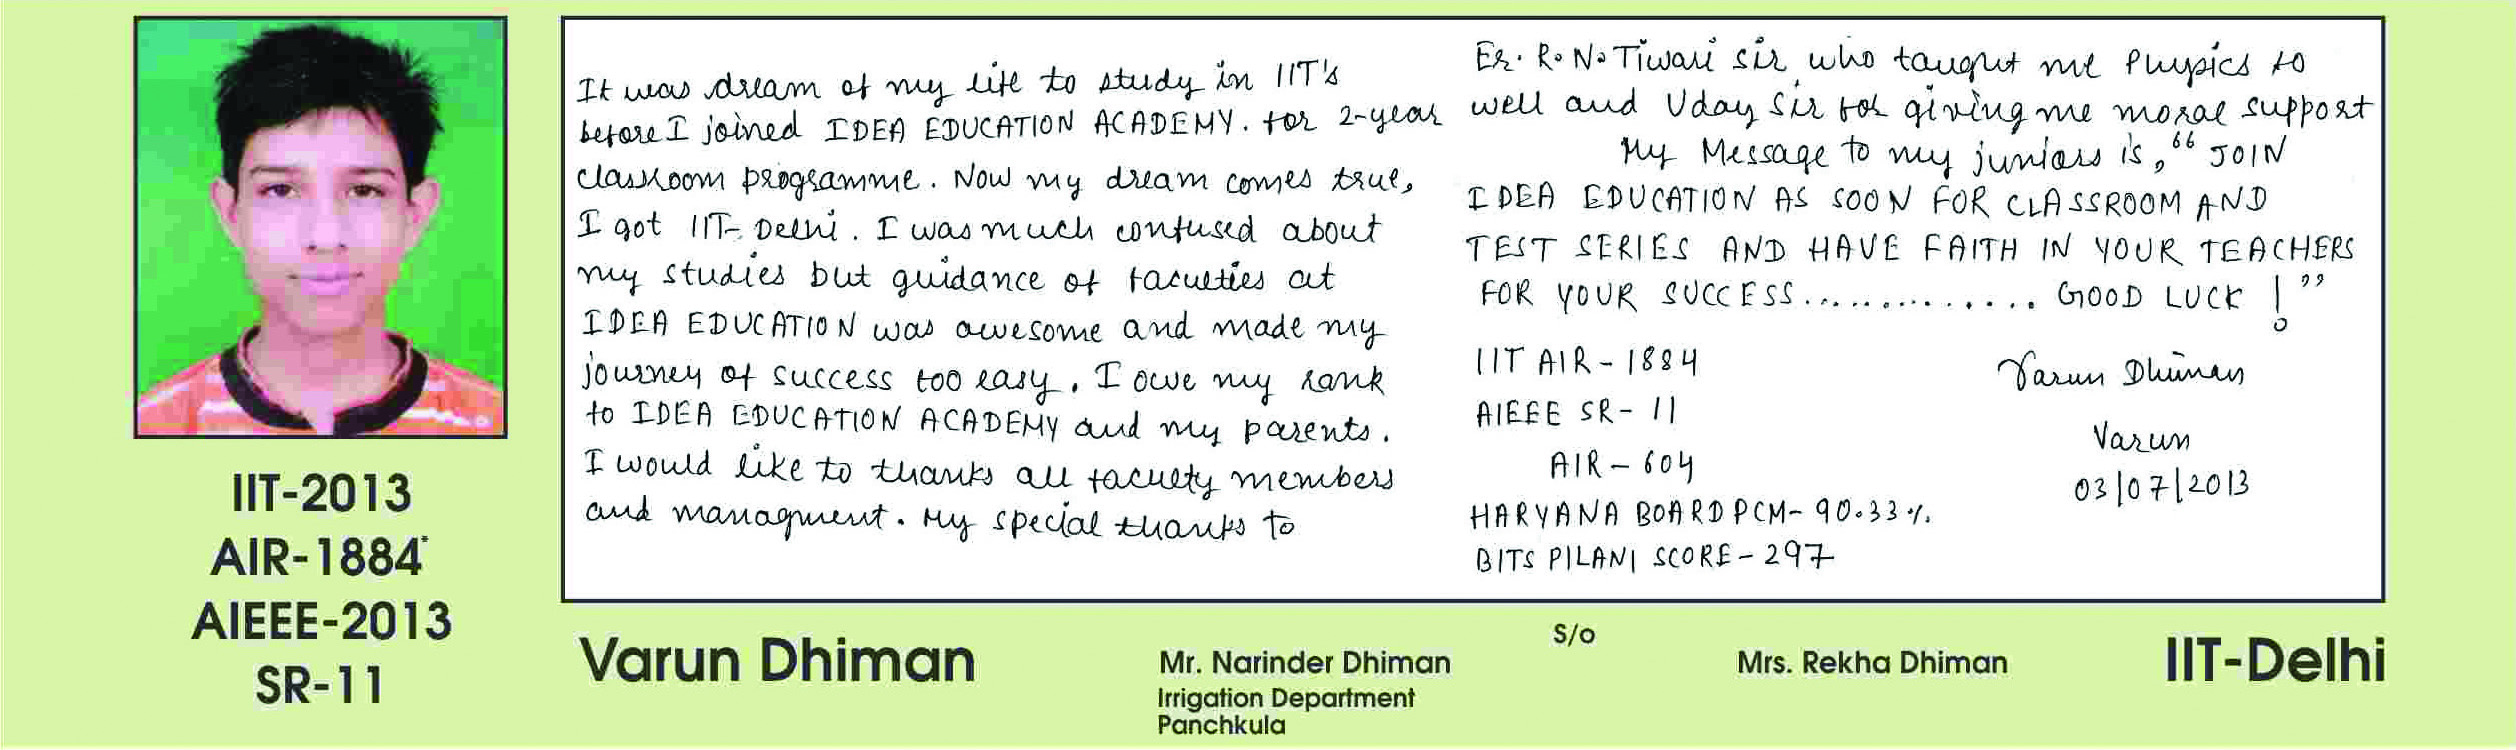 IIT-2013
AIR-1884*
AIEEE-2013
SR-11
It was dream of my life to study in IIT's
before I joined IDEA EDUCATION ACADEMY. for 2-year
classroom programme. Now my dream comes true,
I got IIT-Delhi. I was much confused about
my studies but guidance of faculties at
IDEA EDUCATION was awesome and made my
journey of success too easy. I owe my rank
to IDEA EDUCATION ACADEMY and my parents.
I would like to thanks all faculty members
and managment. My special thanks to
Er. R.N. Tiwari sir, who taught me Physics to
well and Uday Sir for giving me moral support
My Message to my juniors is, “JOIN
IDEA EDUCATION AS SOON FOR CLASSROOM AND
TEST SERIES AND HAVE FAITH IN YOUR TEACHERS
FOR YOUR SUCCESS.............. GOOD LUCK !”
IIT AIR - 1884
AIEEE SR - 11
AIR - 604
HARYANA BOARD PCM - 90.33 %.
BITS PILANI SCORE - 297
Varun Dhiman
Varun
03/07/2013
Varun Dhiman
S/o
Mr. Narinder Dhiman
Irrigation Department
Panchkula
Mrs. Rekha Dhiman
IIT-Delhi